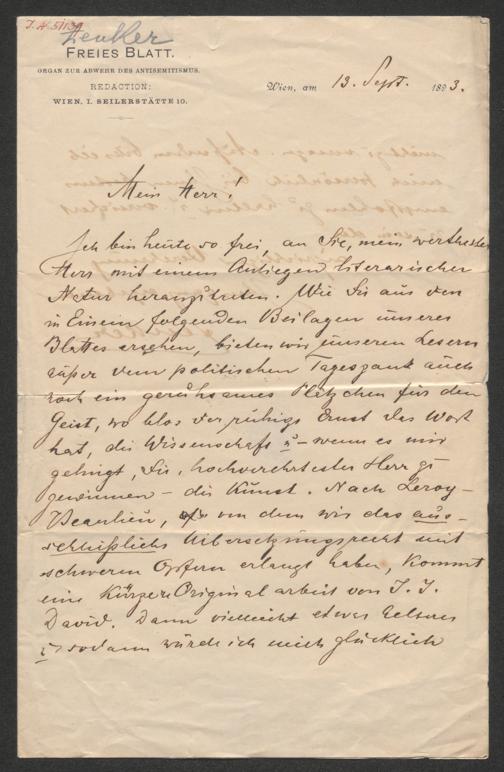 Zenker
FREIES BLATT.
ORGAN ZUR ABWEHR DES ANTISEMITISMUS.
REDACTION:
WIEN, I. SEILERSTÄTTE 10.
Wien, am 13. Sept. 1893.
Mein Herr!
Ich bin heute so frei, an Sie, mein werthester
Herr mit einem Anliegen literarischer
Natur heranzutreten. Wie Sie aus den
in Einem folgenden Beilagen unseres
Blattes ersehen, bieten wir unseren Lesern
außer dem politischen Tageszank auch
noch ein geruhsames Plätzchen für den
Geist, wo blos der ruhige Ernst das Wort
hat, die Wissenschaft u – wenn es mir
gelingt, Sie, hochverehrtester Herr zu
gewinnen – die Kunst. Nach Leroy-
Beaulieu, von dem wir das aus-
schließliche Übersetzungsrecht mit
schweren Opfern erlangt haben, kommt
eine kürzere Originalarbeit von J. J.
David. Dann vielleicht etwas
u sodann würde ich mich glücklich